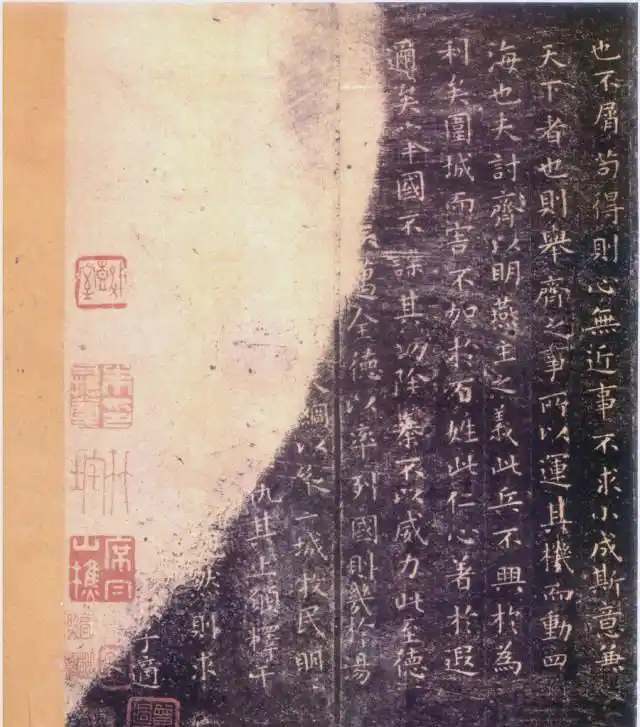 也不屑苟得則心無近事不求小成斯意兼
天下者也則舉齊之事所以運其機而動四
海也夫討齊以明燕主之義此兵不興於為
利矣圍城而害不加於百姓此仁心著於遐
邇矣舉國不謀其功除暴不以威力此至德
邁全德以率列國則幾於湯
以城牧民明
仇其上願釋干
則求
子適